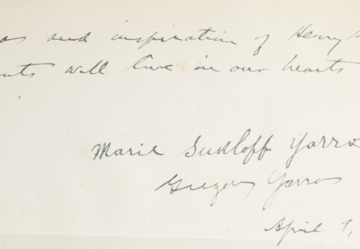 and inspiration of Henry
will live in our hearts
Marie Sukloff Yarros
Gregory Yarros
April 9,